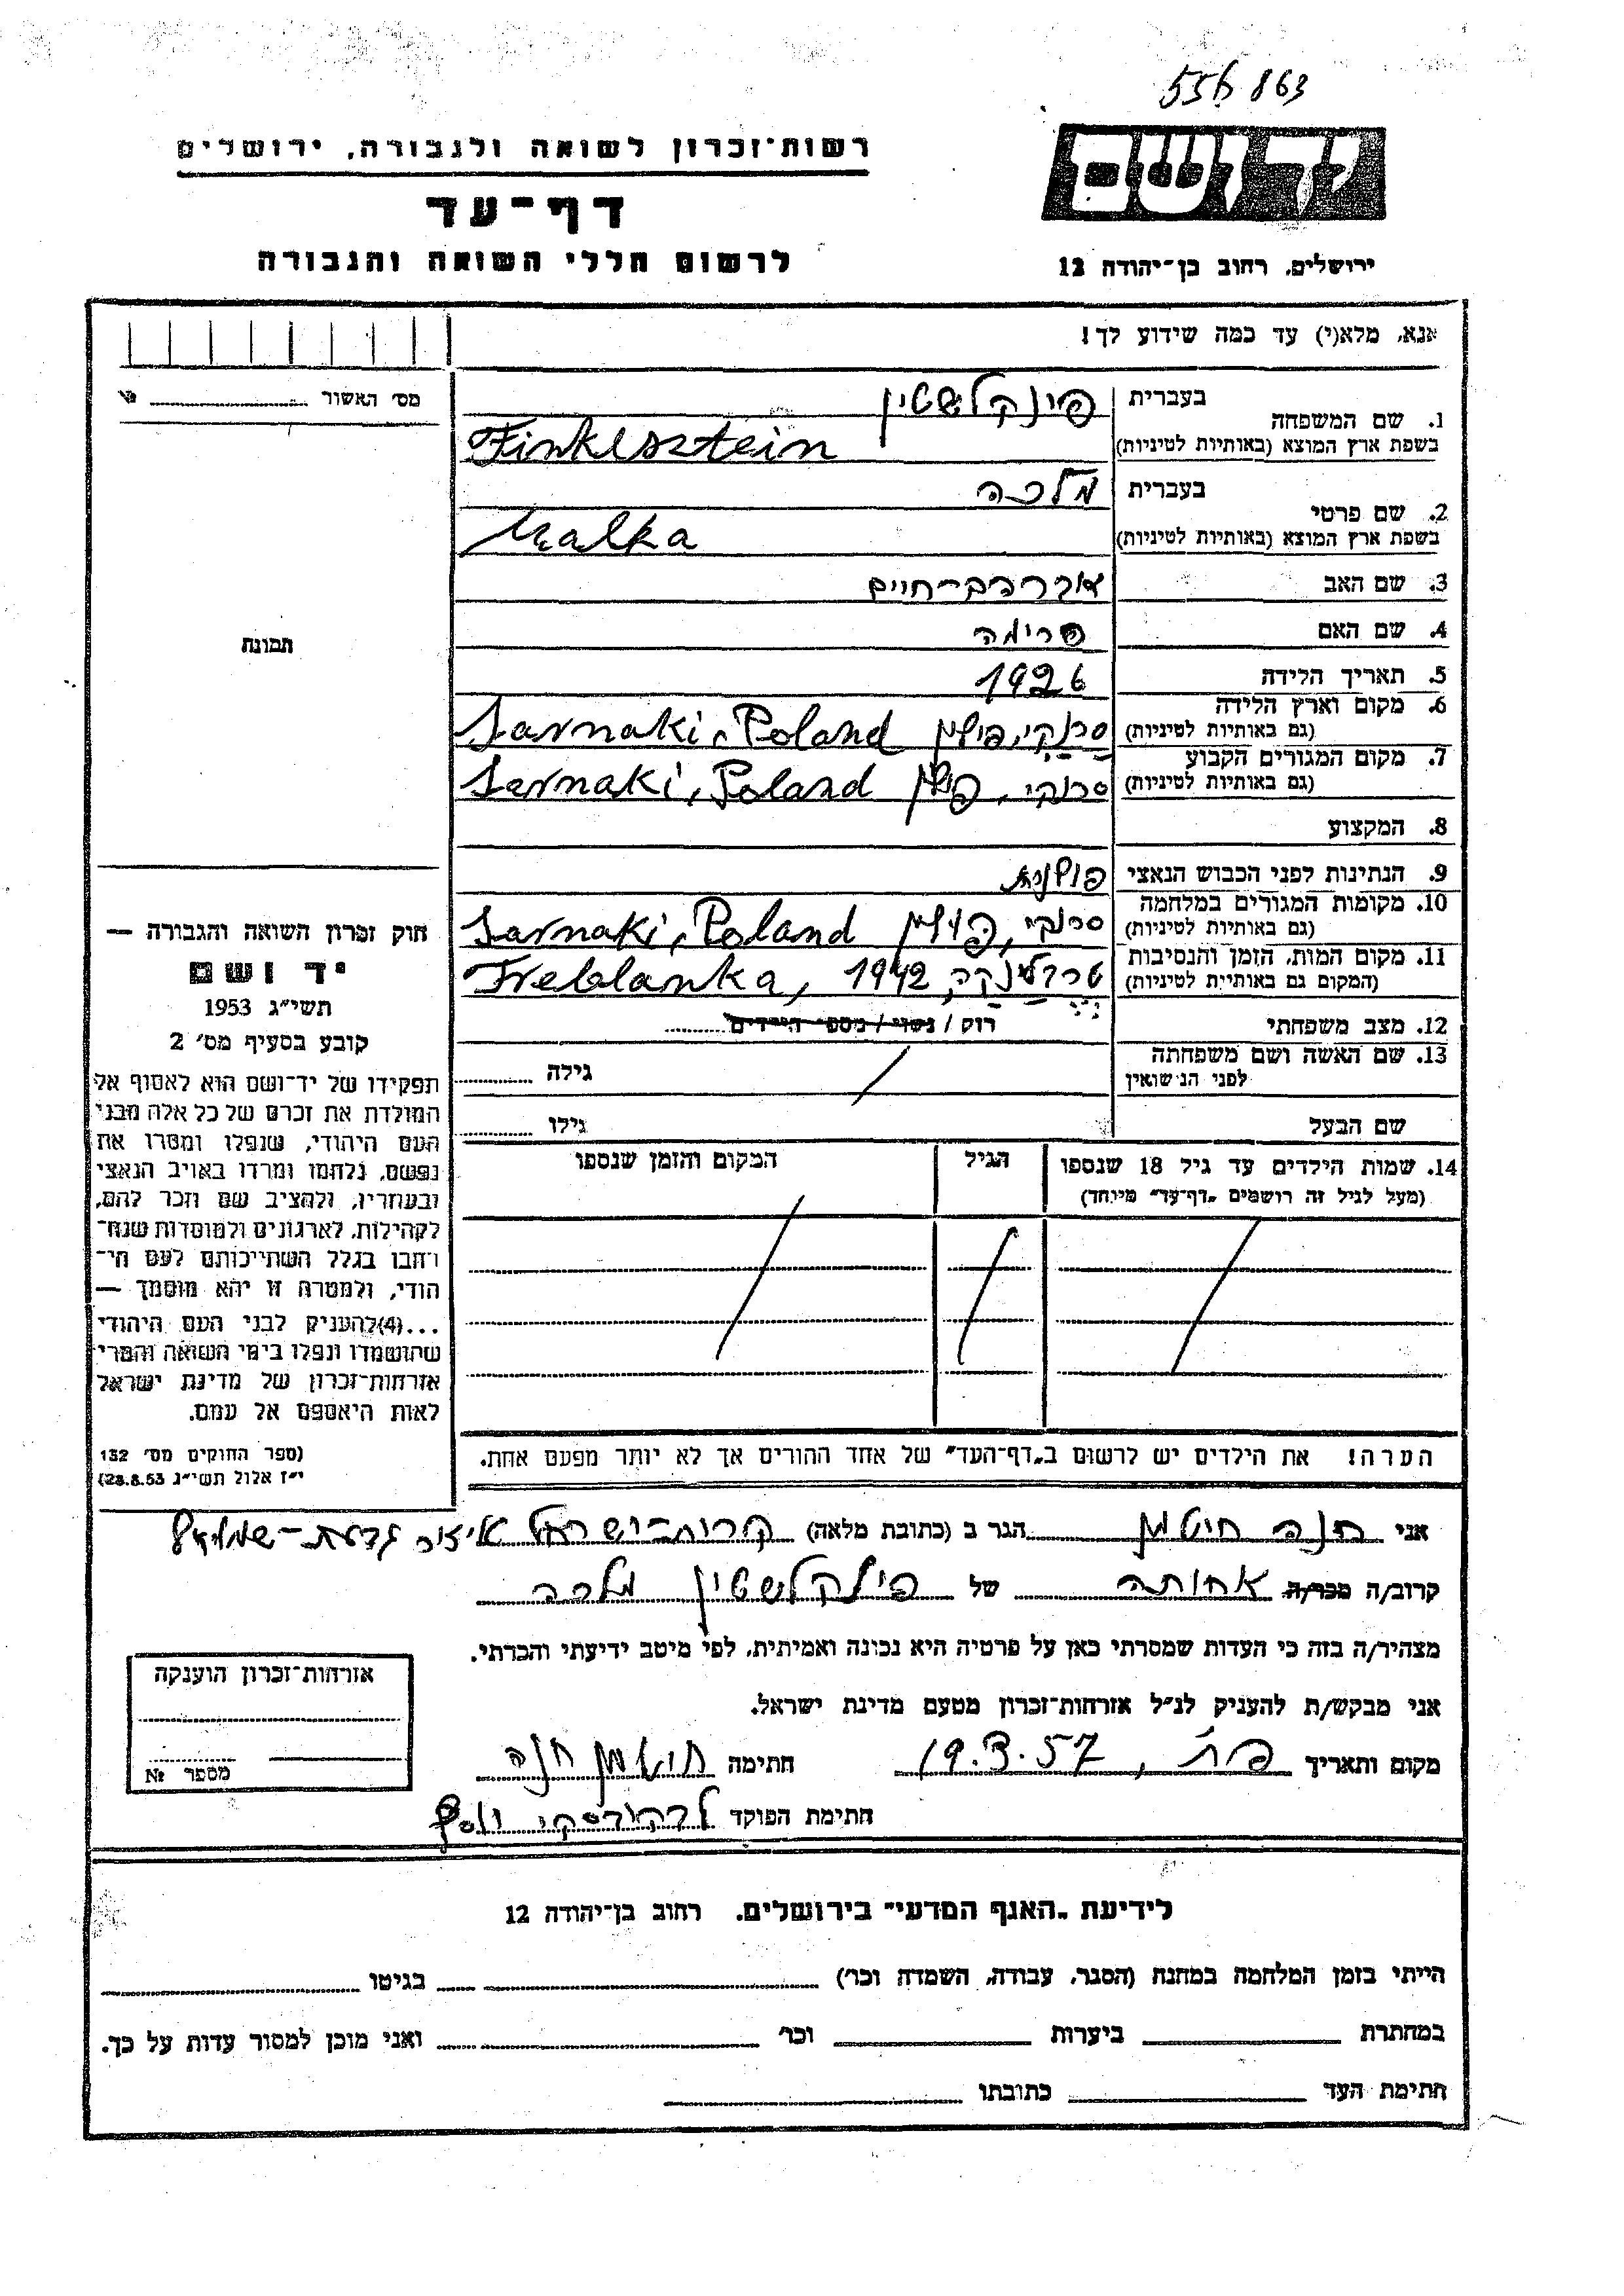 556863
רשות־זכרון לשואה ולגבורה, ירושלים
ד ושם
דף־עד
לרשום חללי השואה והגבורה
ירושלים, רחוב בן־יהודה 12
אנא, מלא(י) עד כמה שידוע לך!
מס׳ האשור
1. שם המשפחה
בעברית פינקלשטין
בשפת ארץ המוצא (באותיות לטיניות) Finklsztein
2. שם פרטי
בעברית מלכה
בשפת ארץ המוצא (באותיות לטיניות) Malka
3. שם האב אברהם־חיים
4. שם האם פרימה
5. תאריך הלידה 1926
6. מקום וארץ הלידה
(גם באותיות לטיניות) סרנקי, פולין Sarnaki, Poland
7. מקום המגורים הקבוע
(גם באותיות לטיניות) סרנקי, פולין Sarnaki, Poland
8. המקצוע
9. הנתינות לפני הכבוש הנאצי פולנית
10. מקומות המגורים במלחמה
(גם באותיות לטיניות) סרנקי, פולין Sarnaki, Poland
11. מקום המות, הזמן והנסיבות
(המקום גם באותיות לטיניות) טרבלינקה, 1942 Treblanka,
12. מצב משפחתי רווק / נשוי / מספר הילדים
13. שם האשה ושם משפחתה
לפני הנישואין גילה
שם הבעל גילו
14. שמות הילדים עד גיל 18 שנספו הגיל המקום והזמן שנספו
(מעל לגיל זה רושמים „דף־עד״ מיוחד)
הערה! את הילדים יש לרשום ב„דף־העד״ של אחד ההורים אך לא יותר מפעם אחת.
תמונה
חוק זכרון השואה והגבורה —
יד ושם
תשי״ג 1953
קובע בסעיף מס׳ 2
תפקידו של יד־ושם הוא לאסוף אל
המולדת את זכרם של כל אלה מבני
העם היהודי, שנפלו ומסרו את
נפשם, נלחמו ומרדו באויב הנאצי
ובעוזריו, ולהציב שם וזכר להם,
לקהילות, לארגונים ולמוסדות שנח־
רבו בגלל השתייכותם לעם הי־
הודי, ולמטרה זו יהא מוסמך —
...(4)להעניק לבני העם היהודי
שהושמדו ונפלו בימי השואה והמרי
אזרחות־זכרון של מדינת ישראל
לאות היאספם אל עמם.
(ספר החוקים מס׳ 132
י״ז אלול תשי״ג 28.8.53)
אני חנה חיטמן הגר ב (כתובת מלאה)
קרוב/ה מכר/ה אחותה של פינקלשטין מלכה
מצהיר/ה בזה כי העדות שמסרתי כאן על פרטיה היא נכונה ואמיתית, לפי מיטב ידיעתי והכרתי.
אני מבקש/ת להעניק לנ״ל אזרחות־זכרון מטעם מדינת ישראל.
מקום ותאריך פ״ת, 19.3.57 חתימה חיטמן חנה
חתימת הפוקד
אזרחות־זכרון הוענקה
מספר №
לידיעת „האגף המדעי״ בירושלים, רחוב בן־יהודה 12
הייתי בזמן המלחמה במחנה (הסגר, עבודה, השמדה וכר׳) בגיטו
במחתרת ביערות וכר׳ ואני מוכן למסור עדות על כך.
חתימת העד כתובתו